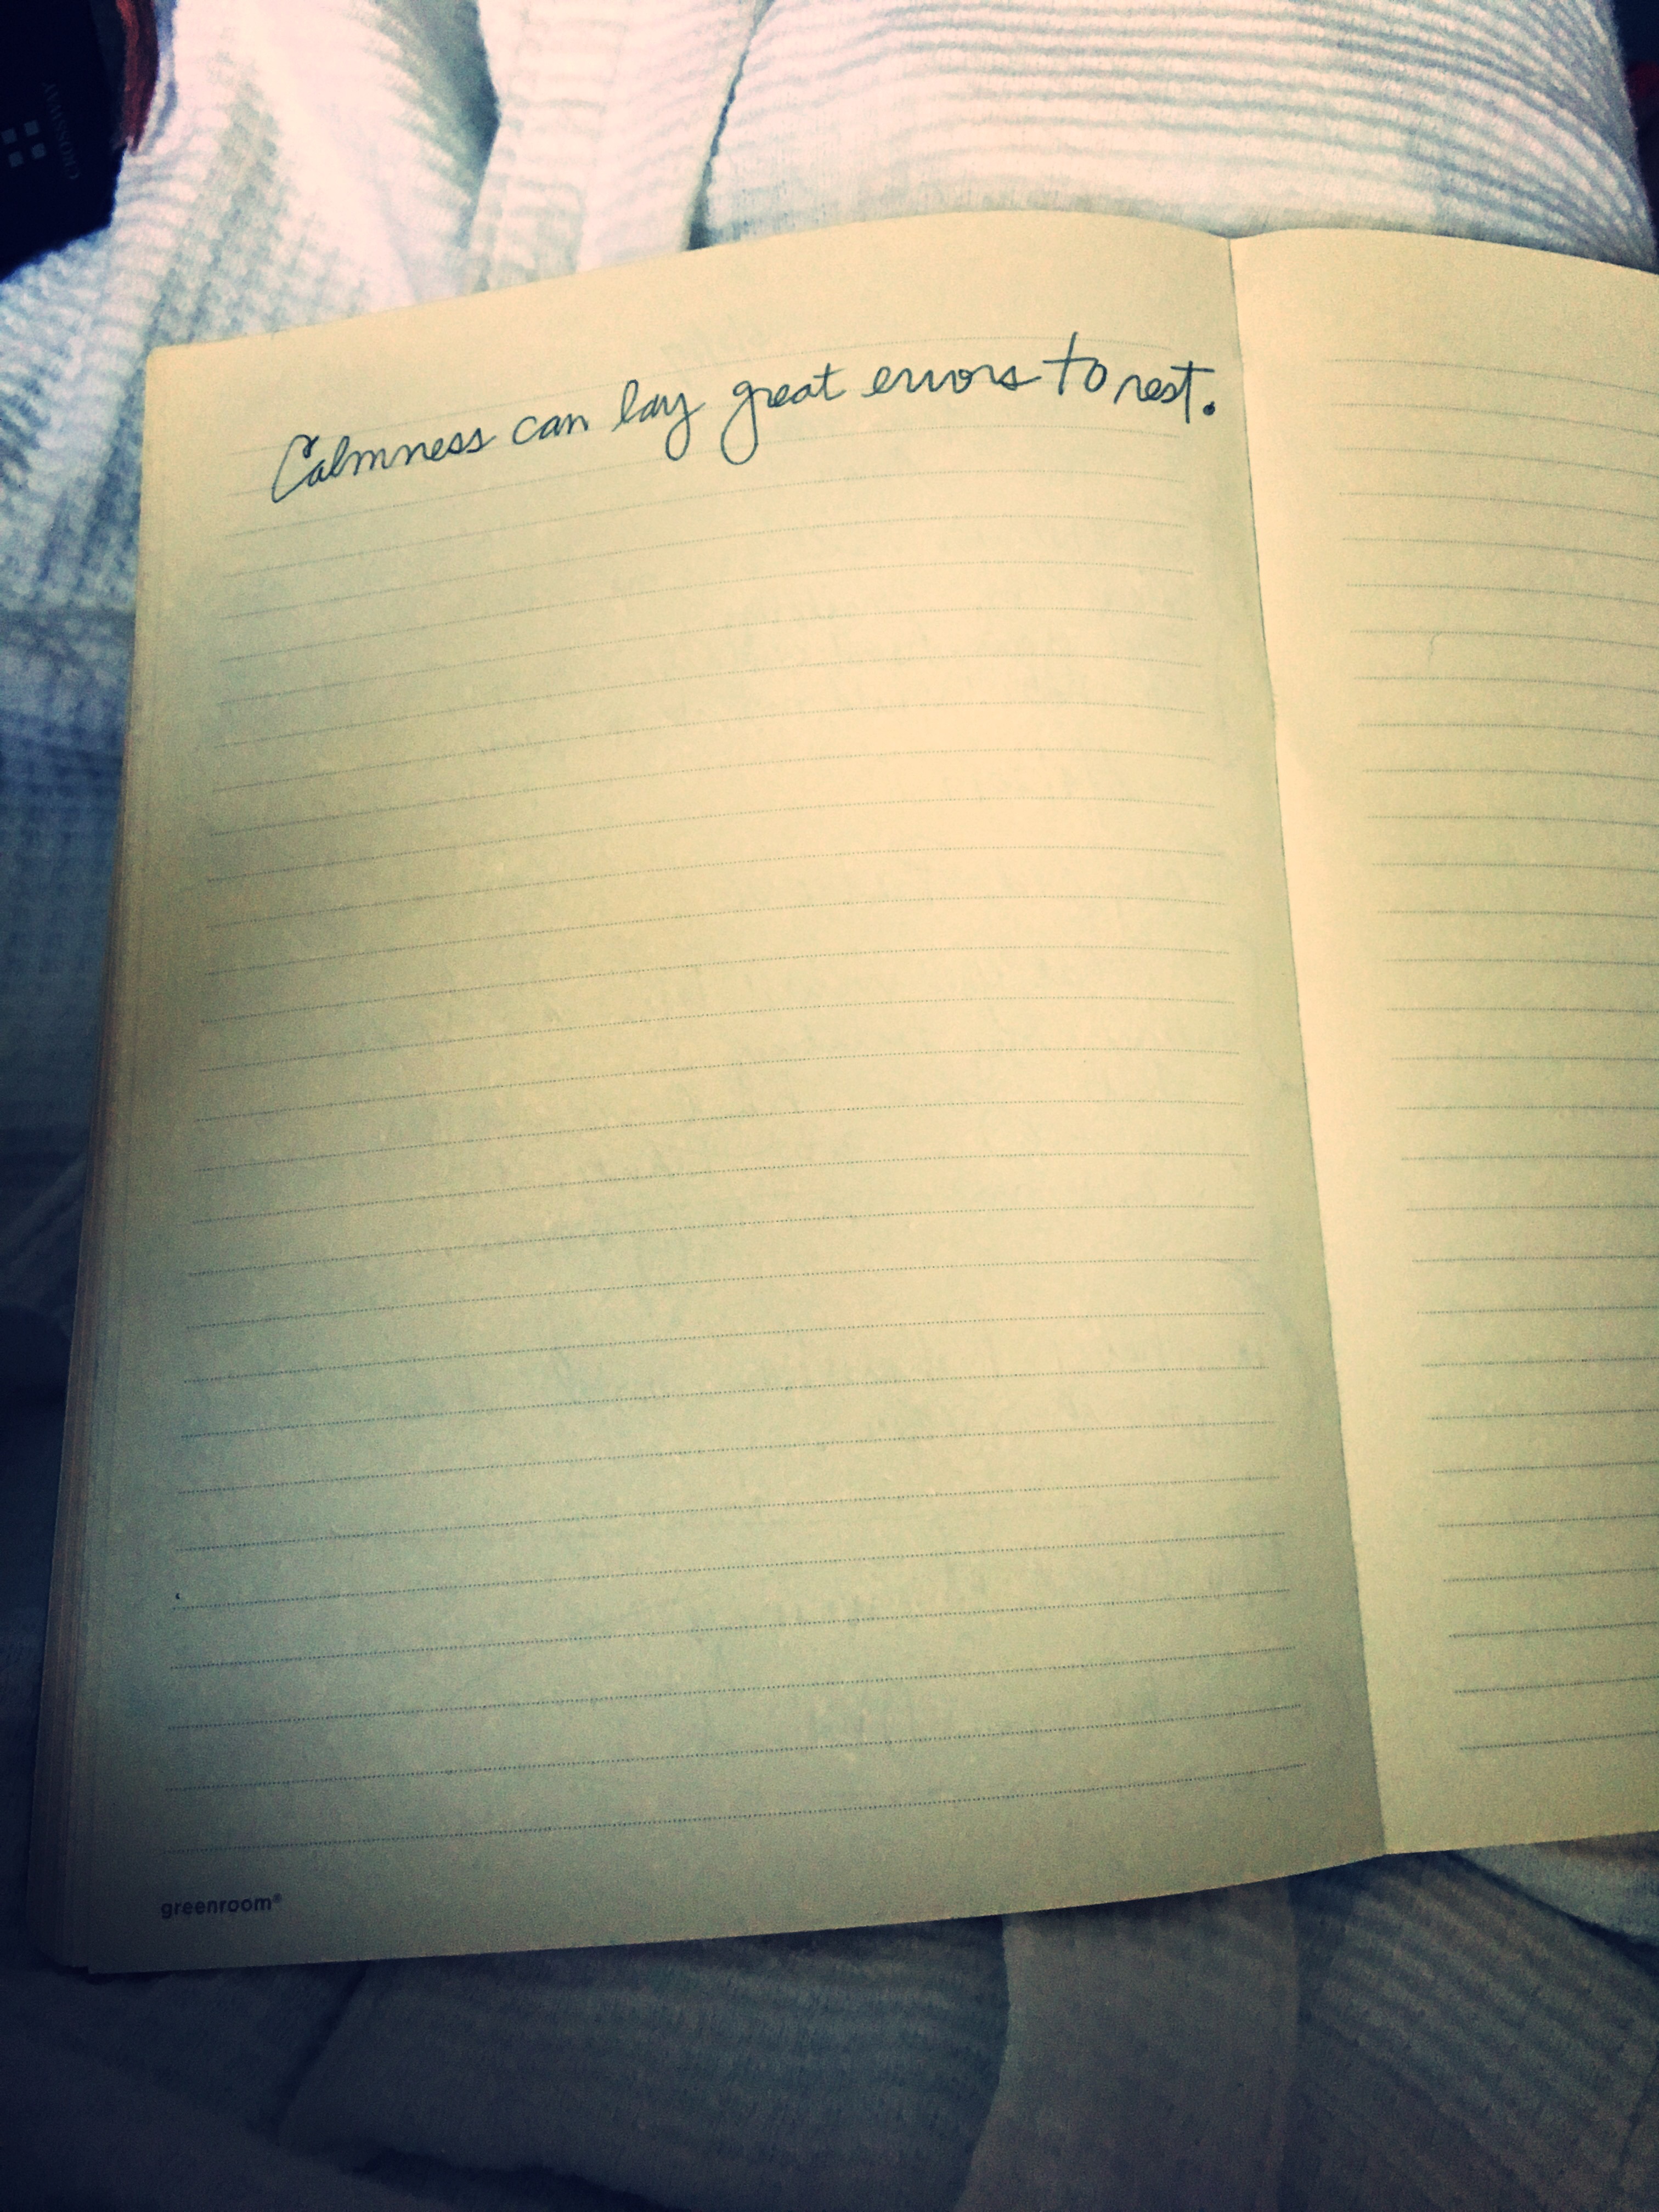 CROSSWAY
Calmness can lay great errors to rest.
greenroom®